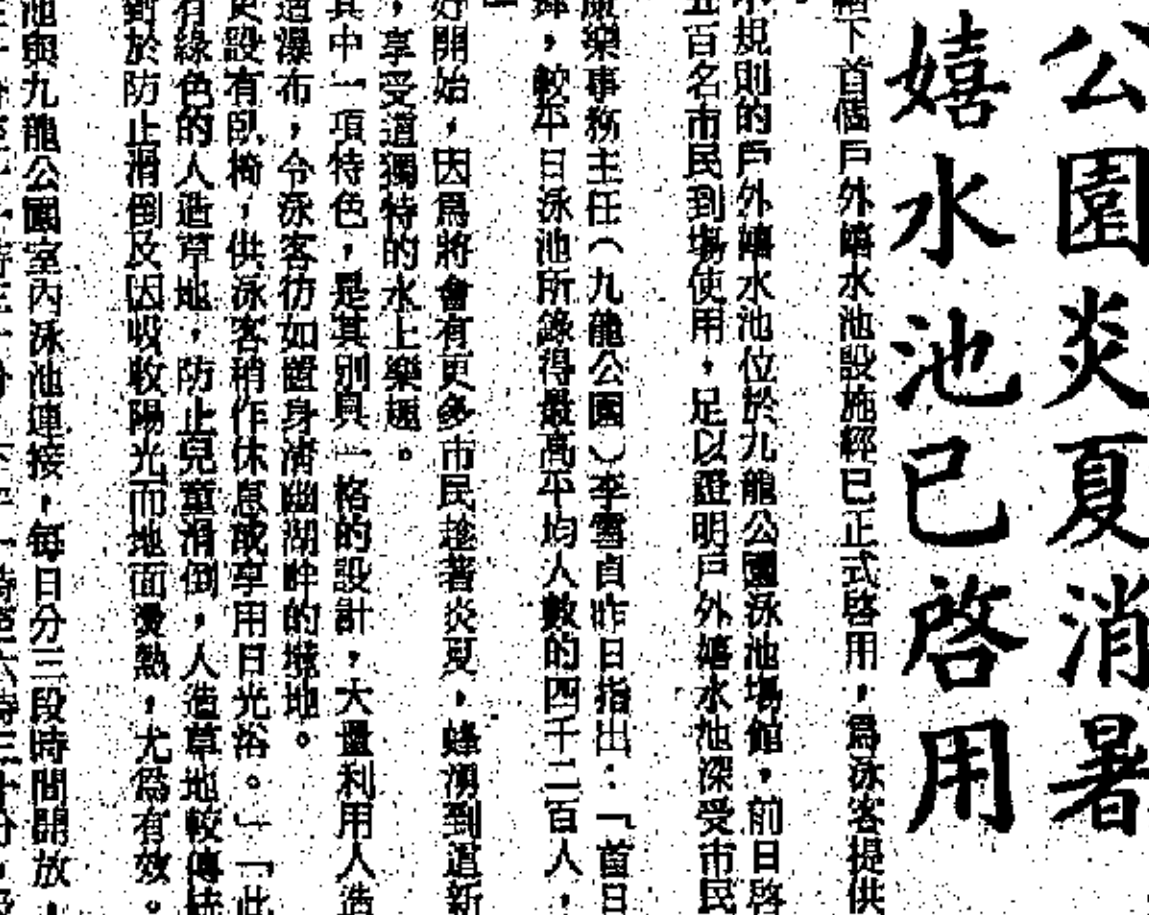 公園炎夏消暑
嬉水池已啓用
轄下首個戶外嬉水池設施經已正式啓用，爲泳客提供
不規則的戶外嬉水池位於九龍公園泳池場館，前日啓
五百名市民到場使用，足以證明戶外嬉水池深受市民
康樂事務主任（九龍公園）李雪貞昨日指出：「首日
，較平日泳池所錄得最高平均人數的四千二百人，
好開始，因爲將會有更多市民趁著炎夏，蜂湧到這新
，享受這獨特的水上樂趣。
其中一項特色，是其別具一格的設計，大量利用人造
造瀑布，令泳客彷如置身清幽湖畔的境地。
更設有臥椅，供泳客稍作休息或享用日光浴。」「此
有綠色的人造草地，防止兒童滑倒，人造草地較傳統
對於防止滑倒及因吸收陽光而地面燙熱，尤爲有效。
池與九龍公園室內泳池連接，每日分三段時間開放，